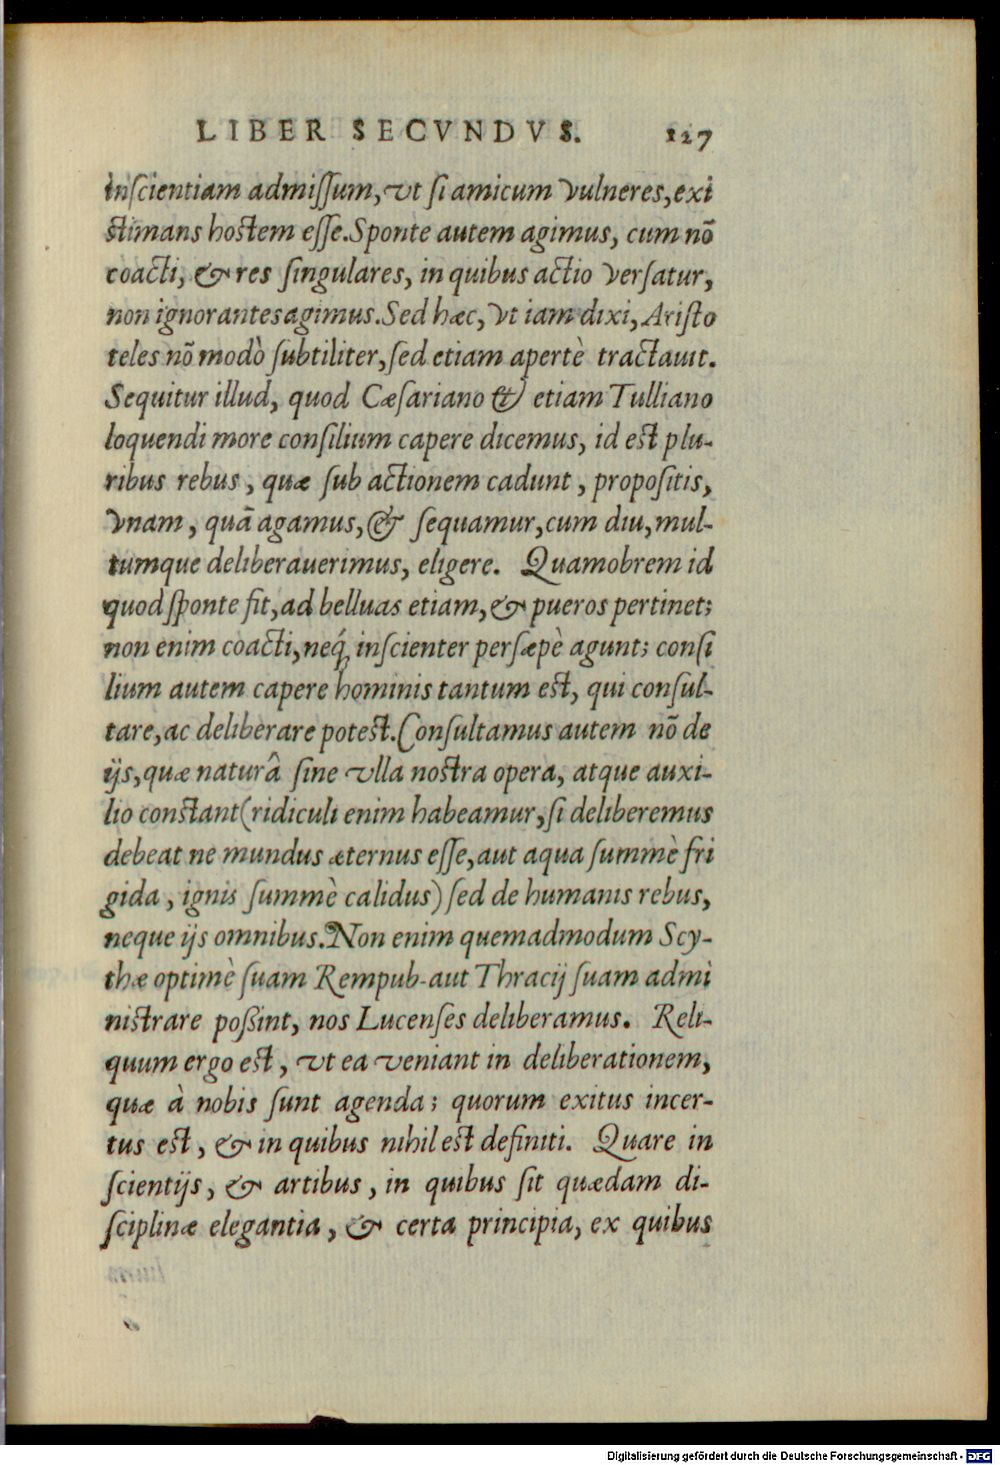 LIBER SECVNDVS. 127
inſcientiam admiſſum, vt ſi amicum vulneres, exi
ſtimans hoſtem eſſe. Sponte autem agimus, cum nõ
coacti, & res ſingulares, in quibus actio verſatur,
non ignorantes agimus. Sed hæc, vt iam dixi, Ariſto
teles nõ modò ſubtiliter, ſed etiam apertè tractauit.
Sequitur illud, quod Cæſariano & etiam Tulliano
loquendi more conſilium capere dicemus, id eſt plu-
ribus rebus, quæ ſub actionem cadunt, propoſitis,
vnam, quã agamus, & ſequamur, cum diu, mul-
tumque deliberauerimus, eligere. Quamobrem id
quod ſponte fit, ad belluas etiam, & pueros pertinet;
non enim coacti, neq́; inſcienter perſæpè agunt; conſi
lium autem capere hominis tantum eſt, qui conſul-
tare, ac deliberare poteſt. Conſultamus autem nõ de
ijs, quæ naturâ ſine vlla noſtra opera, atque auxi-
lio conſtant (ridiculi enim habeamur, ſi deliberemus
debeat ne mundus æternus eſſe, aut aqua ſummè fri
gida, ignis ſummè calidus) ſed de humanis rebus,
neque ijs omnibus. Non enim quemadmodum Scy-
thæ optimè ſuam Rempub. aut Thracij ſuam admi
niſtrare poßint, nos Lucenſes deliberamus. Reli-
quum ergo eſt, vt ea veniant in deliberationem,
quæ à nobis ſunt agenda; quorum exitus incer-
tus eſt, & in quibus nihil eſt definiti. Quare in
ſcientijs, & artibus, in quibus ſit quædam di-
ſciplinæ elegantia, & certa principia, ex quibus
Digitalisierung gefördert durch die Deutsche Forschungsgemeinschaft - DFG